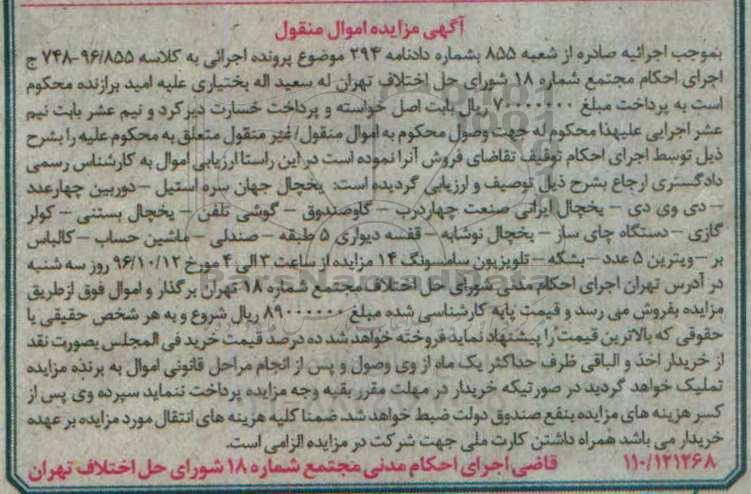 آگهی مزایده اموال منقول
بموجب اجرائیه صادره از شعبه ۸۵۵ بشماره دادنامه ۲۹۴ موضوع پرونده اجرائی به کلاسه ۹۶/۸۵۵-۷۴۸ ج
اجرای احکام مجتمع شماره ۱۸ شورای حل اختلاف تهران له سعید اله بختیاری علیه امید برازنده محکوم
است به پرداخت مبلغ ۷۰۰۰۰۰۰۰ ریال بابت اصل خواسته و پرداخت خسارت دیرکرد و نیم عشر بابت نیم
عشر اجرایی علیهذا محکوم له جهت وصول محکوم به اموال منقول/غیر منقول متعلق به محکوم علیه را بشرح
ذیل توسط اجرای احکام توقیف تقاضای فروش آنرا نموده است در این راستا ارزیابی اموال به کارشناس رسمی
دادگستری ارجاع بشرح ذیل توصیف و ارزیابی گردیده است: یخچال جهان سره استیل – دوربین چهار عدد
– دی وی دی – یخچال ایرانی صنعت چهاردرب – گاوصندوق – گوشی تلفن – یخچال بستنی – کولر
گازی – دستگاه چای ساز – یخچال نوشابه – قفسه دیواری ۵ طبقه – صندلی – ماشین حساب – کالباس
بر – ویترین ۵ عدد – بشکه – تلویزیون سامسونگ ۱۴ مزایده از ساعت ۳ الی ۴ مورخ ۹۶/۱۰/۱۲ روز سه شنبه
در آدرس تهران اجرای احکام مدنی شورای حل اختلاف مجتمع شماره ۱۸ تهران برگذار و اموال فوق ازطریق
مزایده بفروش می رسد و قیمت پایه کارشناسی شده مبلغ ۸۹۰۰۰۰۰۰ ریال شروع و به هر شخص حقیقی یا
حقوقی که بالاترین قیمت را پیشنهاد نماید فروخته خواهد شد ده درصد قیمت خرید فی المجلس بصورت نقد
از خریدار اخذ و الباقی ظرف حداکثر یک ماه از وی وصول و پس از انجام مراحل قانونی اموال به برنده مزایده
تملیک خواهد گردید در صورتیکه خریدار در مهلت مقرر بقیه وجه مزایده پرداخت ننماید سپرده وی پس از
کسر هزینه های مزایده بنفع صندوق دولت ضبط خواهد شد. ضمنا کلیه هزینه های انتقال مورد مزایده بر عهده
خریدار می باشد همراه داشتن کارت ملی جهت شرکت در مزایده الزامی است.
۱۱۰/۱۲۱۲۶۸ قاضی اجرای احکام مدنی مجتمع شماره ۱۸ شورای حل اختلاف تهران